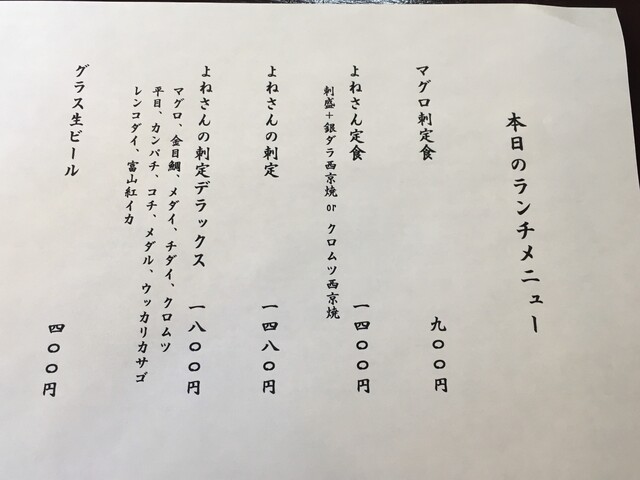 本日のランチメニュー
マグロ刺定食 九〇〇円
よねさん定食 一四〇〇円
刺盛+銀ダラ西京焼 or クロムツ西京焼
よねさんの刺定 一四八〇円
よねさんの刺定デラックス 一八〇〇円
マグロ、金目鯛、メダイ、チダイ、クロムツ
平目、カンパチ、コチ、メダル、ウッカリカサゴ
レンコダイ、富山紅イカ
グラス生ビール 四〇〇円